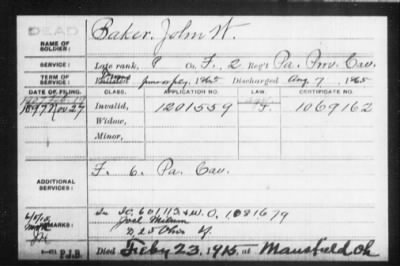 DEAD
NAME OF SOLDIER: Baker, John W.
SERVICE: Late rank, P Co. F, 2 Reg't Pa. Prov. Cav.
TERM OF SERVICE: Enlisted 1865 Discharged Aug 7, 1865
DATE OF FILING. CLASS. APPLICATION NO. LAW. CERTIFICATE NO.
1897 Nov 27 Invalid, 1201559 1069162
Widow,
Minor,
ADDITIONAL SERVICES: F. 6. Pa. Cav.
REMARKS: 601,113 & W.O. 1081679
Joel
D 25 Ohio
P.J.B. Died Feby 23, 1915, at Mansfield Oh